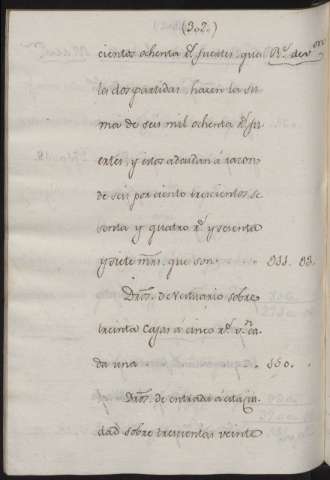 (302.)
cientos ochenta rs. fuertes: qua Rs. de vn.
la dos partidas hazen la su
ma de seis mil ochenta rs. fu
ertes, y estos adeudan á razon
de seis por ciento trescientos se
senta y quatro rs. y sesenta
y siete mrs. que son 911. 33.
Dros. de Vestuario sobre
treinta Cajas á cinco rs. vn. ca
da una 150.
Dros. de entrada á esta Ciu
dad sobre trescientas veinte